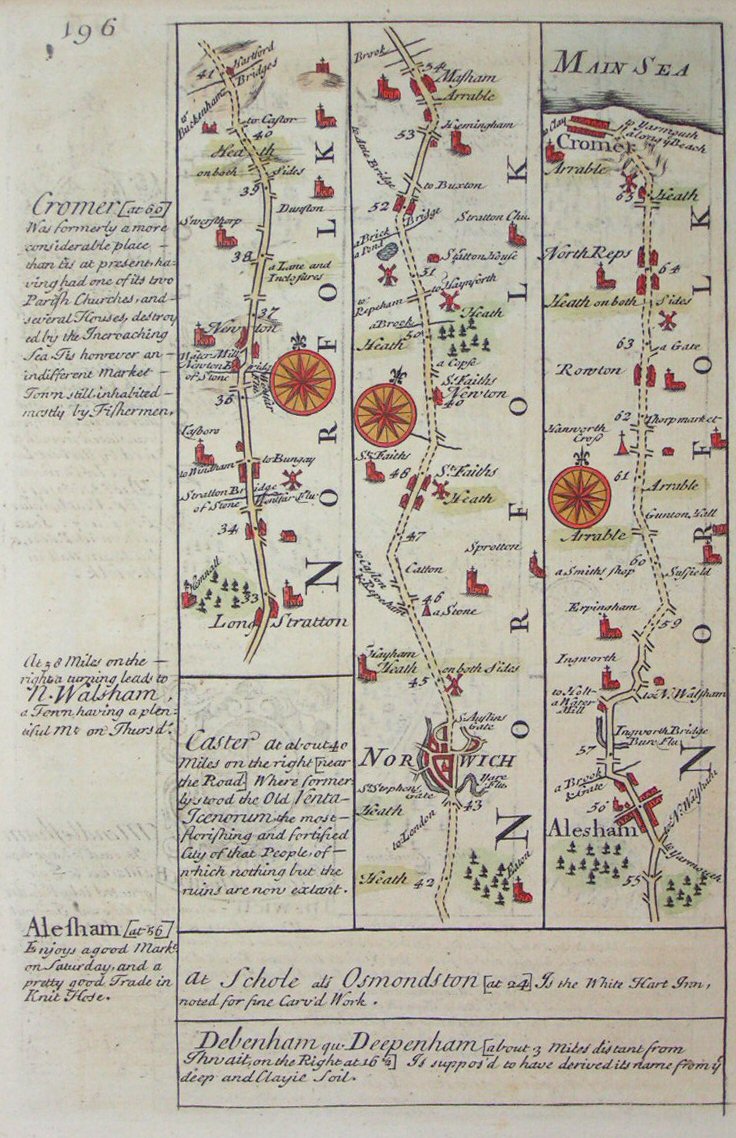 196
Cromer [at 66]
Was formerly a more
considerable place
than tis at present ha-
ving had one of its two
Parish Churches, and
several Houses, destroy
ed by the Incroaching
Sea Tis however an
indifferent Market
Town still inhabited
mostly by Fishermen.
At 58 Miles on the
right a turning leads to
N. Walsham,
a Town having a plen-
tiful Mt. on Thursd.
Alesham [at 56]
Enjoys a good Markt
on Saturday, and a
pretty good Trade in
Knit Hose.
41 Hartford
Bridges
to Buckenham
to Castor
40
Heath
on both Sides
39
Dunston
Swersthorp
38
a Lane and
Inclosures
37
Newton
Major Mills
Newton Bridg
of Stone
36
Tasboro
to Windham
to Bungay
Stratton Bridge
of Stone
34
33
Long Stratton
NORFOLK
Caster At about 40
Miles on the right [near
the Road] Where former-
ly stood the Old Venta-
Icenorum the most
florishing and fortified
City of that People, of
which nothing but the
ruins are now extant.
Brook
54
Masham
Arrable
53
Hemingham
to Buxton
52
Bridge
Stratton Chu.
a Brick
Statton House
51
to Haynforth
to Repeham
Heath
a Brook
50
Heath
a Copse
St. Faiths
Newton
49
St. Faiths
48
St. Faiths
Heath
47
Sprotton
Catton
46
a Stone
Hayham
Heath on both Sides
45
St. Austins
Gate
NORWICH
St. Stephens
Gate
Yare
Flu
43
Heath
to London
Heath
42
Eaton
NORFOLK
MAIN SEA
to Clay
to Yarmouth
along ye Beach
Cromer
Arrable
65
Heath
North Reps
64
Heath on both Sides
63
a Gate
Rowton
62
Thorpmarket
Hanworth
Cross
61
Arrable
Gunton Hall
Arrable
60
a Smiths shop
Susfield
59
Erpingham
Ingworth
to Holt
to N. Walsham
a Water
Mill
Ingworth Bridge
Bure Flu.
57
a Brook
& Gate
56
Alesham
to N. Walsham
to Yarmouth
55
NORFOLK
At Schole als Osmondston [at 24] Is the White Hart Inn,
noted for fine Carv'd Work.
Debenham qu. Deepenham [about 3 Miles distant from
Thwait, on the Right at 16 ½] Is suppos'd to have derived its name from ye
deep and Clayie Soil.